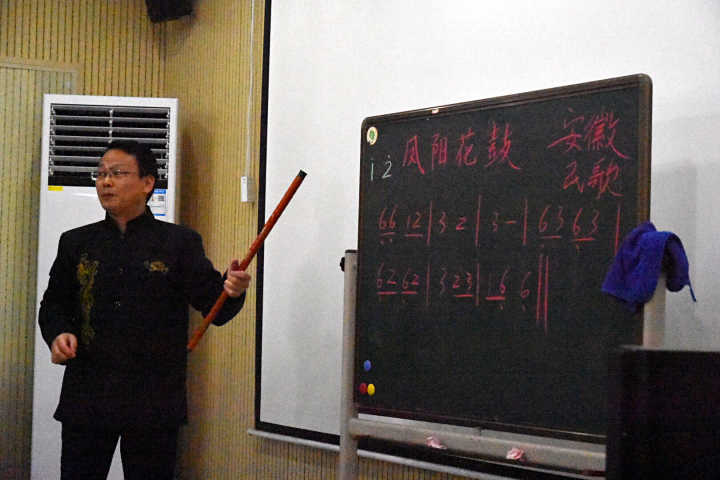 凤阳花鼓 安徽
1 2 民歌
66 12 | 3 2 | 3 - | 63 63 |
62 62 | 3 23 | 16 6 ‖